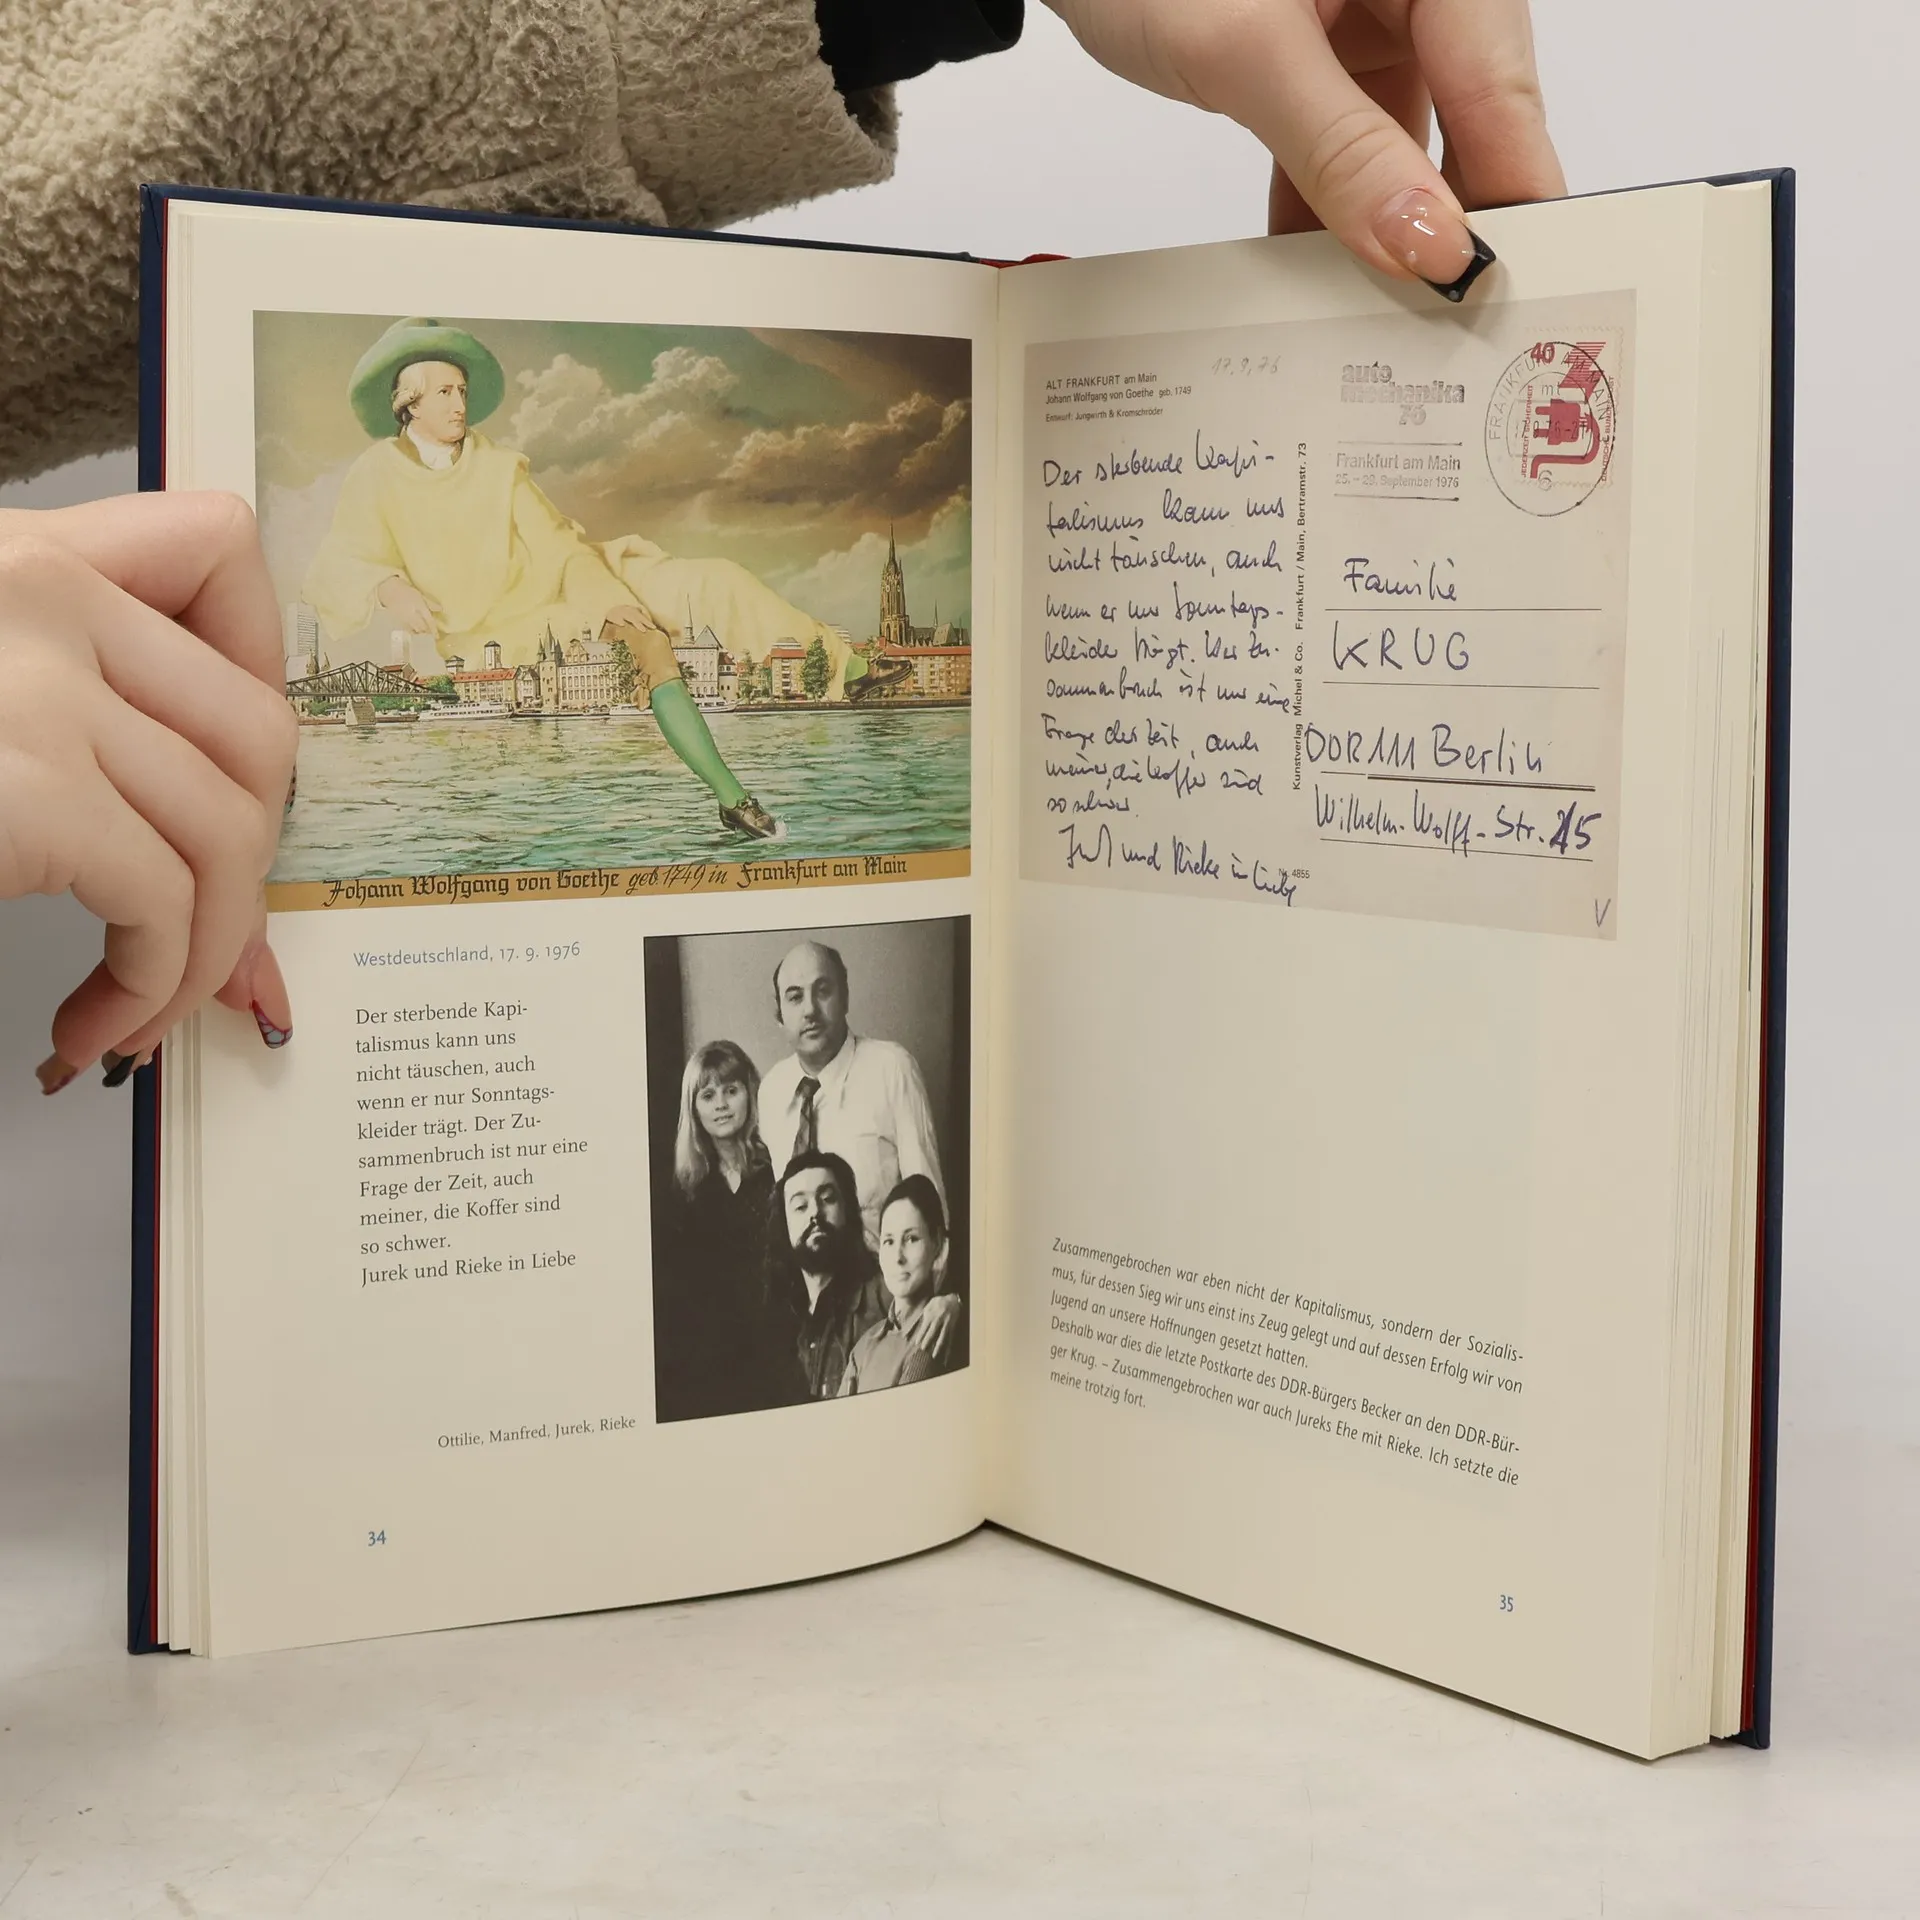 Johann Wolfgang von Goethe geb. 1749 in Frankfurt am Main
Westdeutschland, 17. 9. 1976
Der sterbende Kapi-
talismus kann uns
nicht täuschen, auch
wenn er nur Sonntags-
kleider trägt. Der Zu-
sammenbruch ist nur eine
Frage der Zeit, auch
meiner, die Koffer sind
so schwer.
Jurek und Rieke in Liebe
Ottilie, Manfred, Jurek, Rieke
34
ALT FRANKFURT am Main
Johann Wolfgang von Goethe geb. 1749
Entwurf: Jungwirth & Kromschröder
17.9.76
Der sterbende Kapi-
talismus kann uns
nicht täuschen, auch
wenn er nur Sonntags-
kleider trägt. Der Zu-
sammenbruch ist nur eine
Frage der Zeit, auch
meiner, die Koffer sind
so schwer.
Jurek und Rieke in Liebe
Kunstverlag Michel & Co. Frankfurt / Main, Bertramstr. 73
Nr. 4855
auto
mechanika
76
Frankfurt am Main
25. – 29. September 1976
FRANKFURT AM MAIN
40
JEDERZEIT SICHERHEIT
DEUTSCHE BUNDESPOST
6
Familie
KRUG
DDR 111 Berlin
Wilhelm-Wolff-Str. 15
V
Zusammengebrochen war eben nicht der Kapitalismus, sondern der Sozialis-
mus, für dessen Sieg wir uns einst ins Zeug gelegt und auf dessen Erfolg wir von
Jugend an unsere Hoffnungen gesetzt hatten.
Deshalb war dies die letzte Postkarte des DDR-Bürgers Becker an den DDR-Bür-
ger Krug. – Zusammengebrochen war auch Jureks Ehe mit Rieke. Ich setzte die
meine trotzig fort.
35